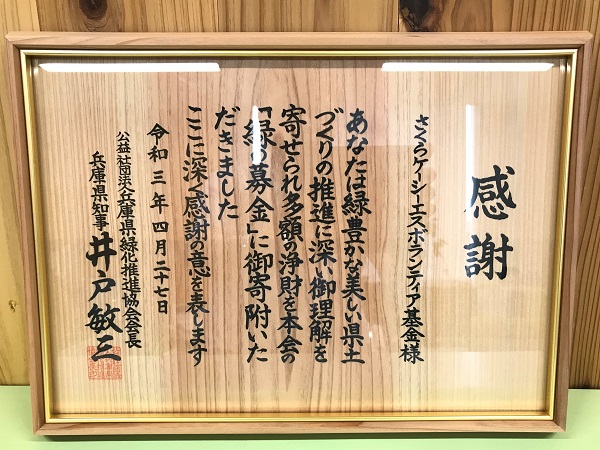 感謝
さくらケーシーエスボランティア基金様
あなたは緑豊かな美しい県土
づくりの推進に深い御理解を
寄せられ多額の浄財を本会の
「緑の募金」に御寄附いた
だきました
ここに深く感謝の意を表します
令和三年四月二十七日
公益社団法人兵庫県緑化推進協会会長
兵庫県知事 井戸敏三